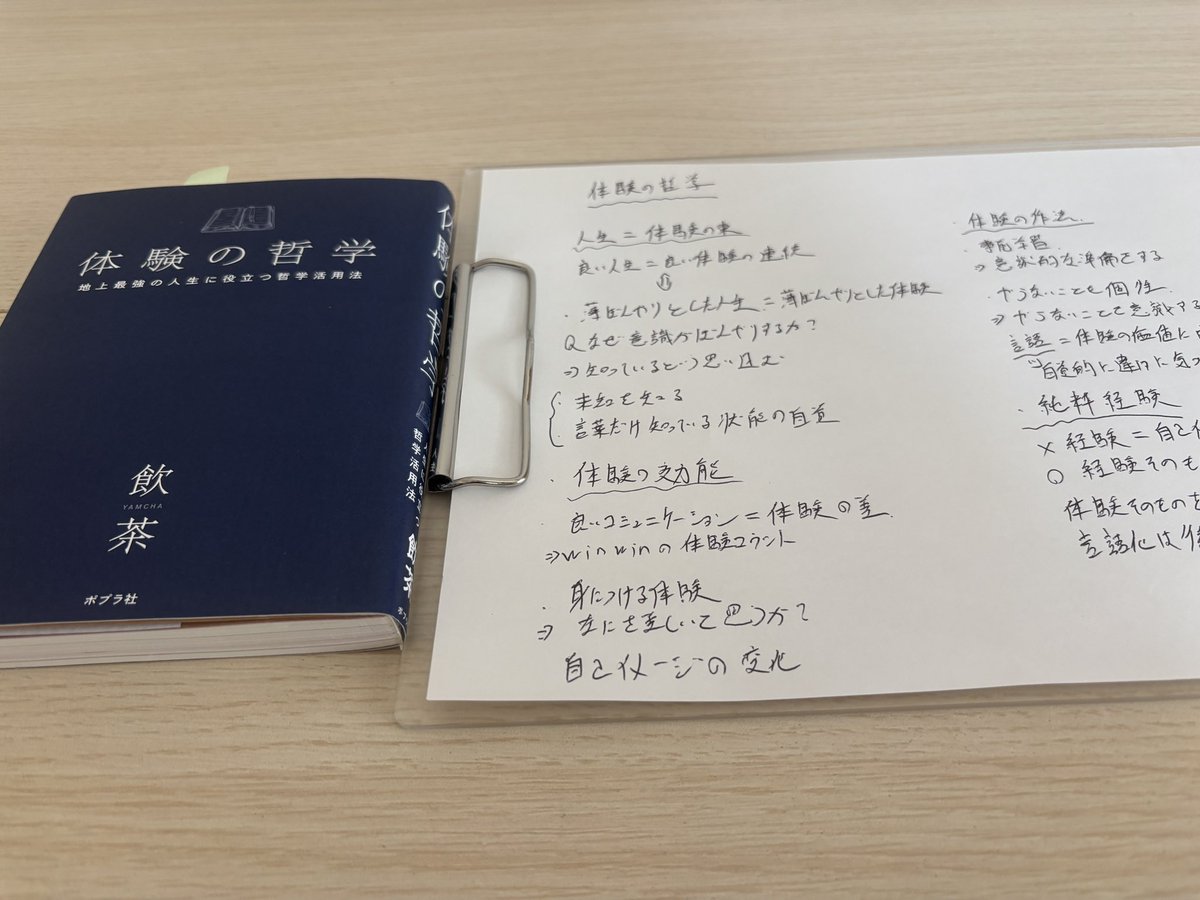 体験の哲学
地上最強の人生に役立つ哲学活用法
飲
YAMCHA
茶
ポプラ社
哲学活用法
飲茶
体験の哲学
人生=体験の束
良い人生=良い体験の連続
⇓
・薄ぼんやりとした人生=薄ぼんやりとした体験
Qなぜ意識がぼんやりするか?
⇒知っているという思い込む
・未知を知る
・言葉だけ知っている状態の自覚
・体験の効能
・良いコミュニケーション=体験の差
⇒winwinの体験コウント
・身につける体験
⇒なにを美しいと思うか?
自己イメージの変化
・体験の作法
・事前学習
⇒意識的な準備をする
・やらないことも個性
⇒やらないことを意識する
言語=体験の価値に
自覚的に違いに気づ
・純粋経験
×経験=自己
○経験そのもの
体験そのものを
言語化は